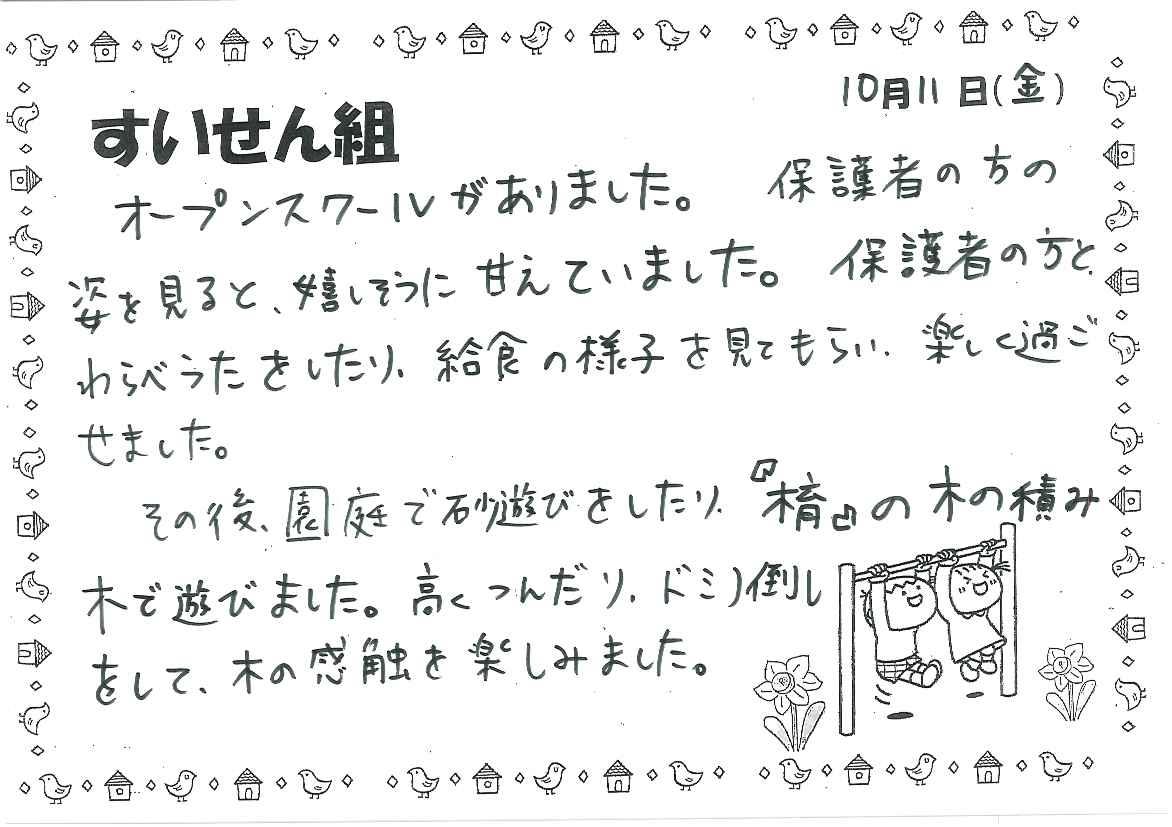 10月11日(金)
すいせん組
オープンスクールがありました。 保護者の方の
姿を見ると、嬉しそうに甘えていました。 保護者の方と、
わらべうたをしたり、給食の様子を見てもらい、楽しく過ご
せました。
その後、園庭で砂遊びをしたり、『木育』の木の積み
木で遊びました。高くつんだり、ドミノ倒し
をして、木の感触を楽しみました。